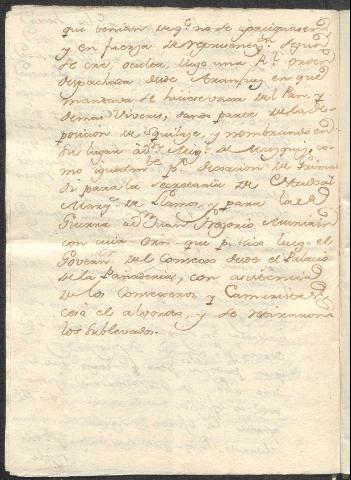 que tenian de q.e no se apaciguasen
y en fuerza de representaz.n
se cree oculta, vino una R.l orden
despachada desde Aranjuez en que
mandava se hiciese vaxa del Pan, y
demas Viveres, dando parte de la de
posicion de Squilaze, y nombrando en
su lugar a D.n Mig.l de Muzquiz, co
mo igualm.te p.r dexacion de Grimal
di para la Secretaria de Estado al
Marq.s de Llanos, y para la de
Guerra a D.n Juan Gregorio Muniain
con cuia Orn. que publico luego el
Govern.r del Consejo desde el Palacio
de la Panaderia, con asistencia
de los Consejeros y Camaristas
cesó el alvoroto, y se retiraron
los sublevados.